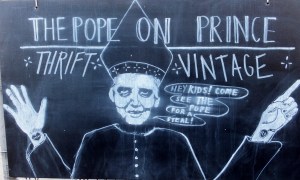 THE POPE ON PRINCE
THRIFT VINTAGE
HEY KIDS! COME
SEE THE
POPE
FOR A
STEAL!